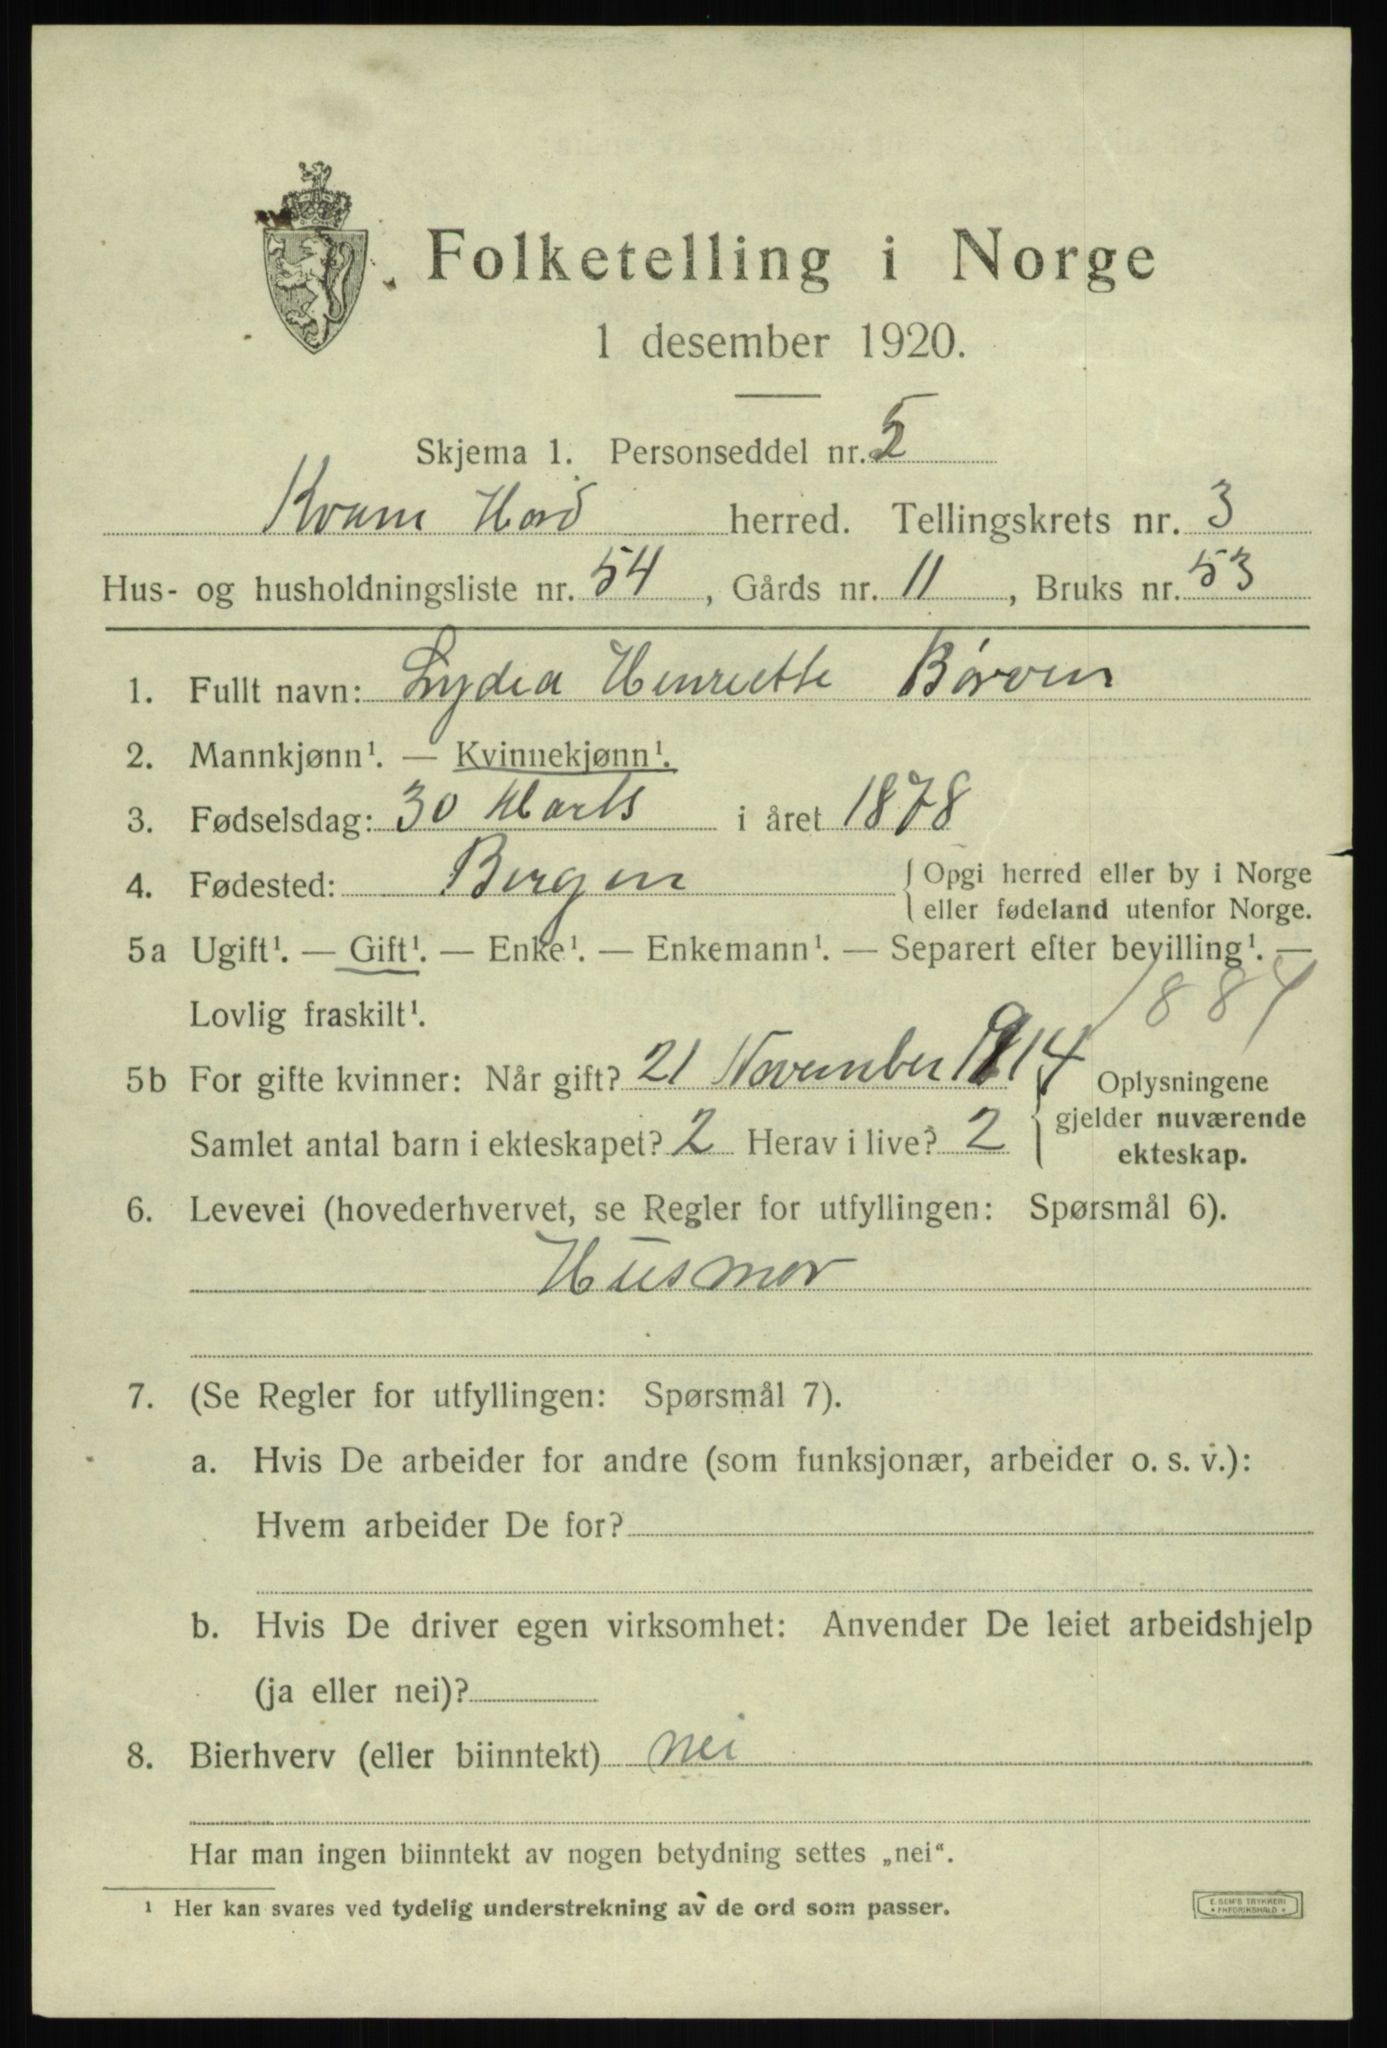 Folketelling i Norge
1 desember 1920.
Skjema 1. Personseddel nr. 5
Kvam Hord herred. Tellingskrets nr. 3
Hus- og husholdningsliste nr. 54, Gårds nr. 11, Bruks nr. 53
1. Fullt navn: Lydia Henriette Børven
2. Mannkjønn¹. — Kvinnekjønn¹.
3. Fødselsdag: 30 Marts i året 1878
4. Fødested: Bergen {Opgi herred eller by i Norge
eller fødeland utenfor Norge.
5a Ugift¹. — Gift¹. — Enke¹. — Enkemann¹. — Separert efter bevilling¹. —
Lovlig fraskilt¹.
5b For gifte kvinner: Når gift? 21 November 1914 Oplysningene
Samlet antal barn i ekteskapet? 2 Herav i live? 2 { gjelder nuværende
ekteskap.
6. Levevei (hovederhvervet, se Regler for utfyllingen: Spørsmål 6).
Husmor
7. (Se Regler for utfyllingen: Spørsmål 7).
a. Hvis De arbeider for andre (som funksjonær, arbeider o. s. v.):
Hvem arbeider De for?
b. Hvis De driver egen virksomhet: Anvender De leiet arbeidshjelp
(ja eller nei)?
8. Bierhverv (eller biinntekt) nei
Har man ingen biinntekt av nogen betydning settes „nei“.
¹ Her kan svares ved tydelig understrekning av de ord som passer.
E. SEM'S TRYKKERI
FREDRIKSHALD